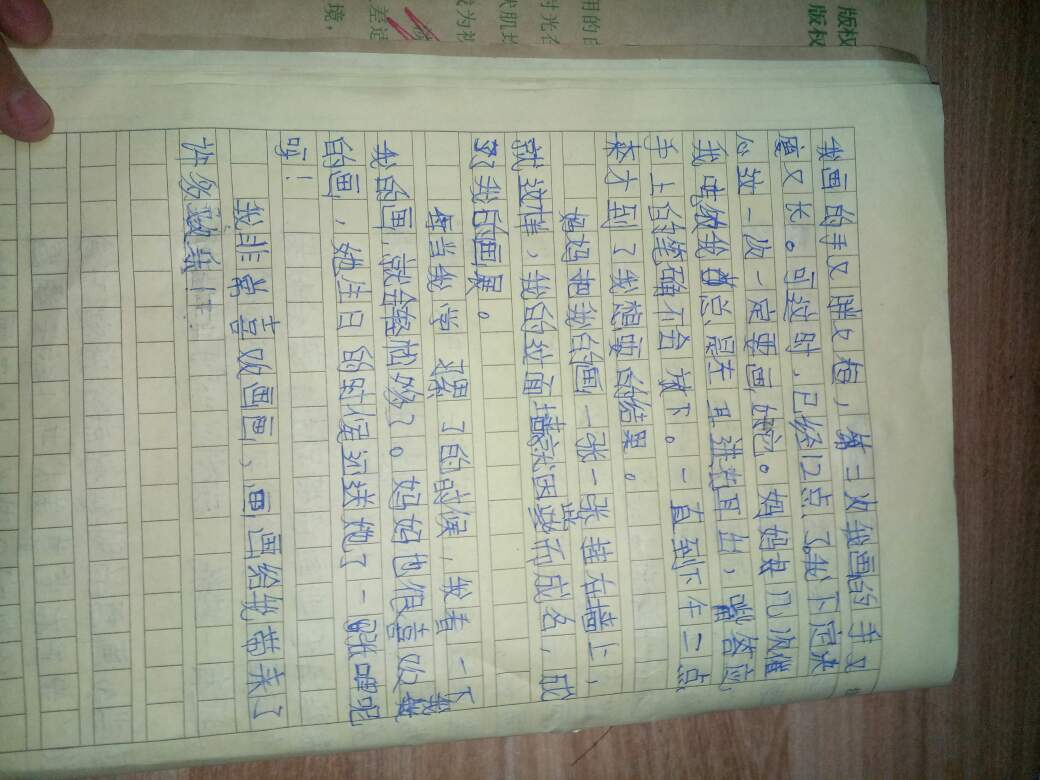 版权
版权
用的日
时光在
代肌扌
成为礼
差远
境，
我画的手又胖又粗，第三次我画的手又
宽又长。可这时，已经12点了我下定决
心放一次一定要画好它。妈妈来几次催
我吃饭我总是左耳进右耳出，嘴答应，
手上的笔确不舍放下。一直到下午二点
森才到了我想要的结果。
妈妈把我的画一张一张挂在墙上，
就这样，我的这面墙就因此而成名，成
了我的画展。
每当我学累了的时候，我看一下
我的画，就会轻松多了。妈妈也很喜欢我
的画，她生日的时候还送她了一张呢
哼！
我非常喜欢画画，画画给我带来了
许多欢乐！